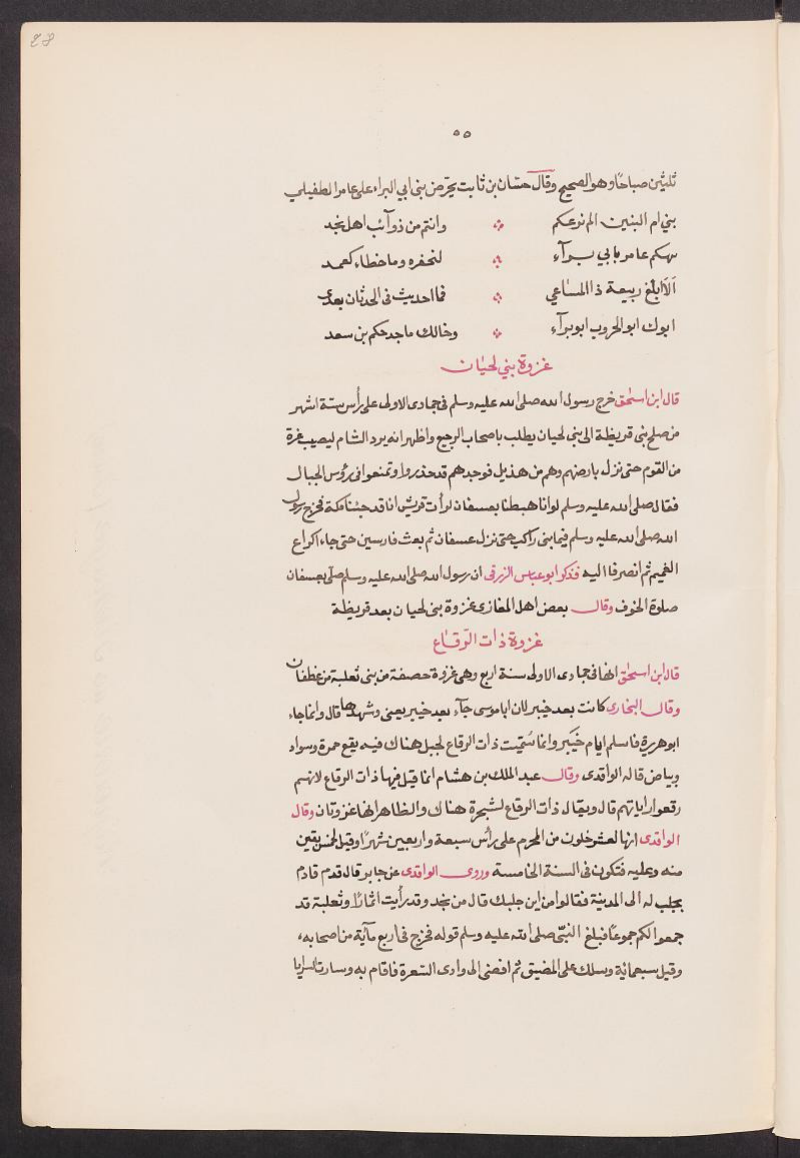 28
٥٥
ثلثين صباحًا وهو الصحيح وقال حسّان بن ثابت يحرّض بنى ابي البراء على عامر الطفيلي
بني ام البنين الم نرعكم ؞ وانتم من ذوآئب اهل نجد
تهكم عامر بابي برآء ؞ لنحفره وما خطاء كعمد
اَلَا ابلغ ربيعة ذا المساعي ؞ فما احدثت فى الحدثان بعدى
ابوك ابو الحروب ابو برآء ؞ وخالك ماجد حكم بن سعد
غزوة بني لحيان
قال ابن اسحٰق خرج رسول الله صلى الله عليه وسلم فى جمادى الاولى على رأس ستة اشهر
من صلح بنى قريظة الى بنى لحيان يطلب باصحاب الرجيع واظهر انه يرد الشام ليصيب غرة
من القوم حتى نزل بارضهم وهم من هذيل فوجدهم قد حذروا وتمنعوا فى رؤس الجبال
فقال صلى الله عليه وسلم لو انا هبطنا بعسفان لرأت قريش انا قد جئنا مكة فخرج رسول
الله صلى الله عليه وسلم فيما بنى راكب حتى نزل عسفان ثم بعث فارسين حتى جاء اكراع
الغميم ثم انصرفا اليه فذكر ابو عياس الزرقى ان رسول الله صلى الله عليه وسلم صلّى بعسفان
صلوة الخوف وقال بعض اهل المغازى غزوة بنى لحيان بعد قريظة
غزوة ذات الرّقاع
قال ابن اسحٰق انها فى جمادى الاولى سنة اربع وهى غزوة حصفة من بنى ثعلبة من غطفان
وقال البخارى كانت بعد خيبر لان ابا موسى جآء بعد خيبر يعنى وشهدها قال وانما جاء
ابو هريرة فاسلم ايام خَيبر وانما سُمّيت ذات الرقاع لجبل هناك فيه بقع حمرة وسواد
وبياض قاله الواقدى وقال عبد الملك بن هشام انما قيل فيها ذات الرقاع لانهم
رقعوا راياتهم قال ويقال ذات الرقاع لشجرة هناك والظاهر انها غزوتان وقال
الواقدى انها لعشر خلون من المحرم على رأس سبعة واربعين شهرًا وقيل لخمس بقين
منه وعليه فتكون فى السنة الخامسة وروى الواقدى عن جابر قال قدم قادم
بجلب له الى المدينة فقالوا من اين جلبك قال من نجد وقد رأيت انمارًا وثعلبة قد
جمعوا لكم جموعًا فبلغ النبّى صلى الله عليه وسلم قوله فخرج فى اربع مآية من اصحابه،
وقيل سبعمائة وسلك على المضيق ثم افضى الى وادى الشعرة فاقام به وسارت السرايا